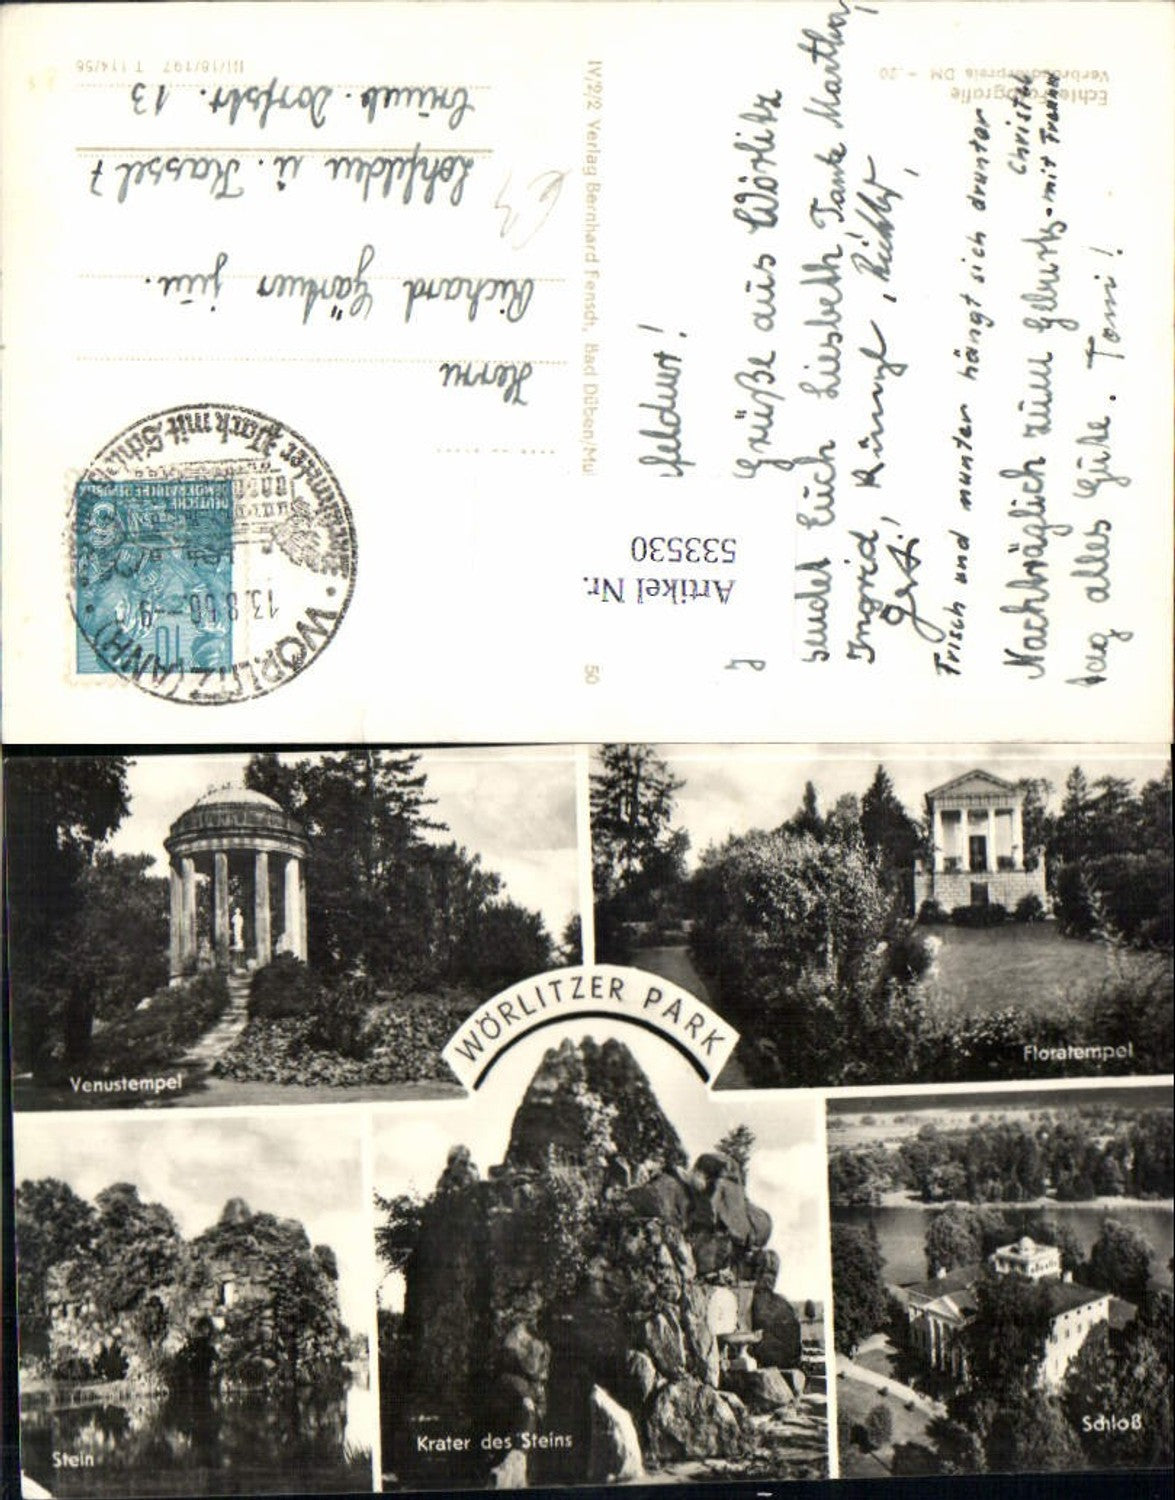 Echte Fotografie
Verbraucherpreis DM -.20
feldwt!
Grüße aus Wörlitz
sendet Euch Liesbeth Tante Martha,
Ingrid, Richter,
Gerti,
Frisch und munter hängt sich drunter
Christa
Nachträglich zum Geburts-mit Frank
tag alles Gute. Toni!
Artikel Nr.
533530
IV/2/2 Verlag Bernhard Fensch, Bad Düben/Mul
50
DEUTSCHE
DEMOKRATISCHE REPUBLIK
10
WÖRLITZ (ANH)
13.8.56.-9
Park mit Schloß
Herrn
Richard Gärtner jun.
Lohfelden ü. Kassel 7
Crumb. Dorfstr. 13
III/18/197 T 114/56
WÖRLITZER PARK
Venustempel
Floratempel
Stein
Krater des Steins
Schloß